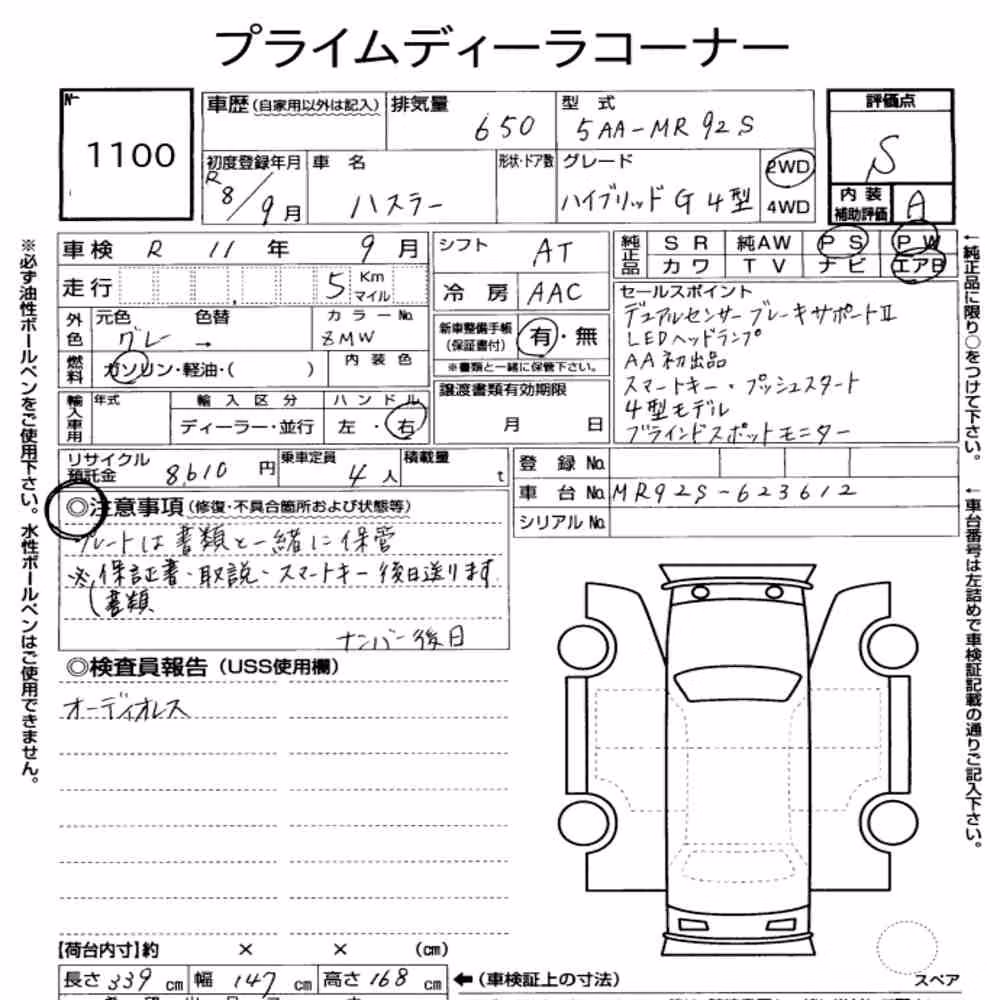 プライムディーラコーナー
No
1100
車歴(自家用以外は記入)
排気量
650
型 式
5AA-MR92S
評価点
S
内装
補助評価
A
初度登録年月
R
8/9月
車 名
ハスラー
形状・ドア数
グレード
ハイブリッド G 4型
2WD
4WD
※必ず油性ボールペンをご使用下さい。水性ボールペンはご使用できません。
車検 R 11 年 9 月
走行 5 Km
マイル
外色
元色 グレー
色替 →
カラーNo.
ZMW
燃料
ガソリン・軽油・( )
内 装 色
輸入車用
年式
輸 入 区 分
ディーラー・並行
ハ ン ド ル
左 ・ 右
シフト AT
冷 房 AAC
新車整備手帳
(保証書付)
有・無
※書類と一緒に保管下さい。
譲渡書類有効期限
月 日
純正品
SR 純AW PS PW
カワ TV ナビ エアB
セールスポイント
デュアルセンサーブレーキサポートⅡ
LEDヘッドランプ
AA初出品
スマートキー・プッシュスタート
4型モデル
ブラインドスポットモニター
←純正品に限り○をつけて下さい。
リサイクル
預託金
8610 円
乗車定員
4 人
積載量
t
登 録 No.
車 台 No. MR92S-623612
シリアル No.
←車台番号は左詰めで車検証記載の通りご記入下さい。
◎注意事項(修復・不具合箇所および状態等)
プレートは書類と一緒に保管
※保証書・取説・スマートキー後日送ります
書類
ナンバー後日
◎検査員報告(USS使用欄)
オーディオレス
【荷台内寸】約 × × (cm)
長さ 339 cm 幅 147 cm 高さ 168 cm
←(車検証上の寸法)
スペア